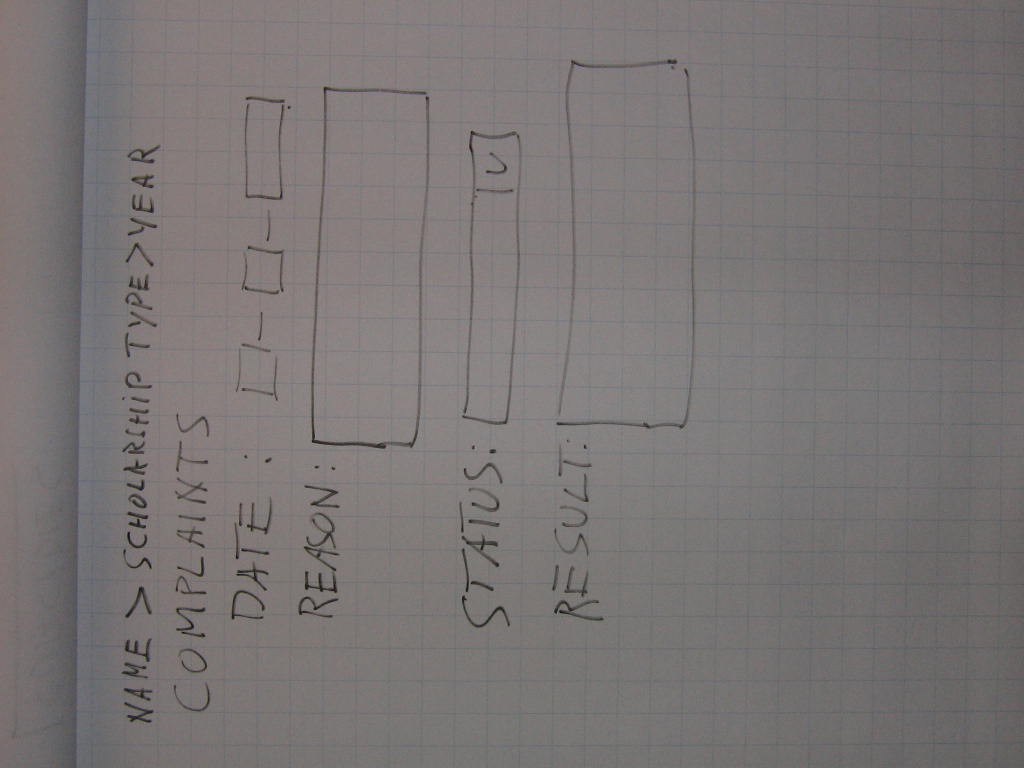 NAME > SCHOLARIHIP TYPE > YEAR
COMPLAINTS
DATE : - -
REASON:
STATUS:
RESULT: